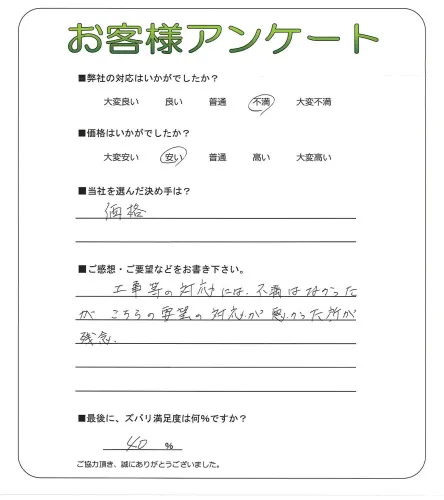 お客様アンケート
■弊社の対応はいかがでしたか？
大変良い 良い 普通 不満 大変不満
■価格はいかがでしたか？
大変安い 安い 普通 高い 大変高い
■当社を選んだ決め手は？
価格
■ご感想・ご要望などをお書き下さい。
工事等の対応には、不満はなかった
が こちらの要望の対応が悪かった所が
残念.
■最後に、ズバリ満足度は何％ですか？
40 %
ご協力頂き、誠にありがとうございました。